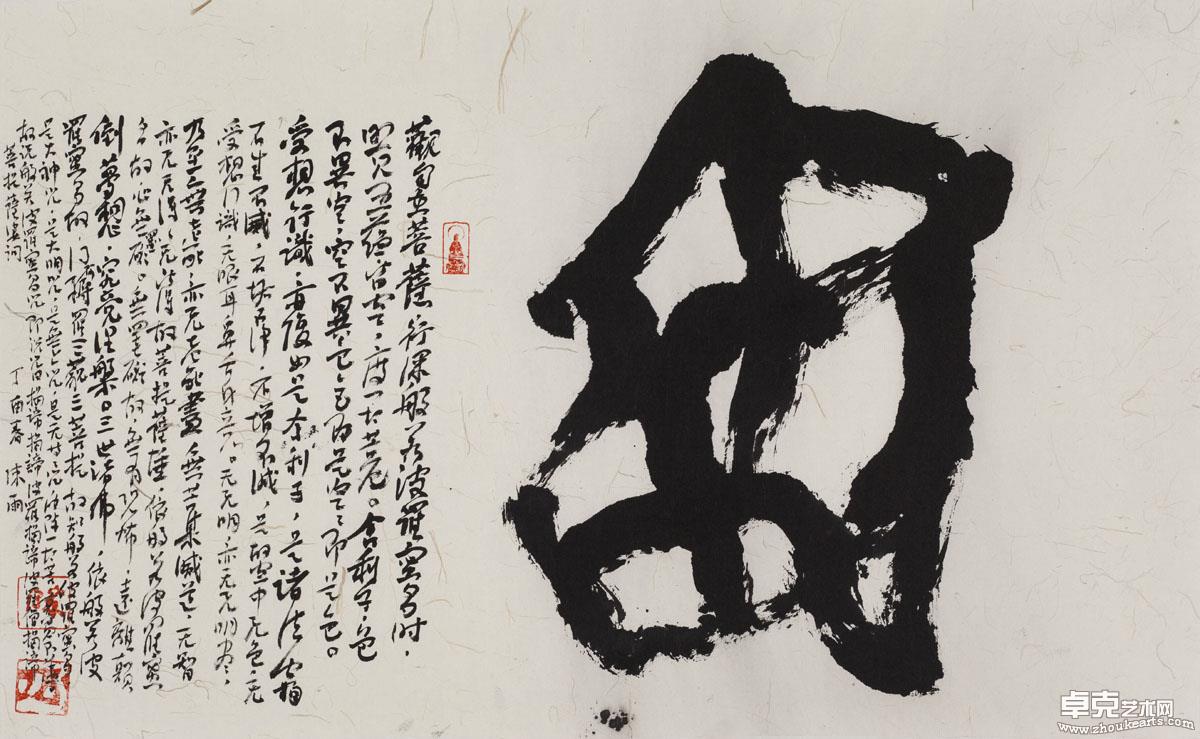 觀自在菩薩行深般若波羅蜜多時，
照見五蘊皆空，度一切苦厄。舍利子，色
不異空，空不異色，色即是空，空即是色。
受想行識，亦復如是。舍利子，是諸法空相
不生不滅，不垢不淨，不增不減，是故空中无色，无
受想行識，无眼耳鼻舌身意。无无明，亦无无明盡，
乃至无老死，亦无老死盡，無苦集滅道，无智
亦无得，以无所得故，菩提薩埵，依般若波羅蜜
多故，心無罣礙。無罣礙故，無有恐怖，遠離顛
倒夢想，究竟涅槃。三世諸佛，依般若波
羅蜜多故，得阿耨多羅三藐三菩提，故知般若波羅蜜多
是大神咒，是大明咒，是無上咒，是无等等咒，能除一切苦
故說般若波羅蜜多咒，即說咒曰揭諦揭諦，波羅揭諦，波羅僧揭諦
菩提薩婆訶
丁酉春
卓克艺术网
www.zhoukearts.com